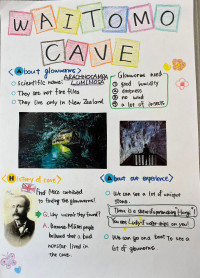 WAITOMO
CAVE
<About glowworms>
○ Scientific name: ARACHNOCAMPA
LUMINOSA
○ They are not fire flies
○ They live only in New Zealand
Glowworms need
① good humidity
② darkness
③ no wind
④ a lot of insects
<History of cave>
Fred Mace
to finding the glowworms!
Q. Why weren't they found?
A. Because Māori people
believed that a bad
monster lived in
the cave.
<About our experience>
○ We can see a lot of unique
stones.
There is a stone
You are Lucky if water drops on you!
○ We can go on a boat to see a
lot of glowworms.